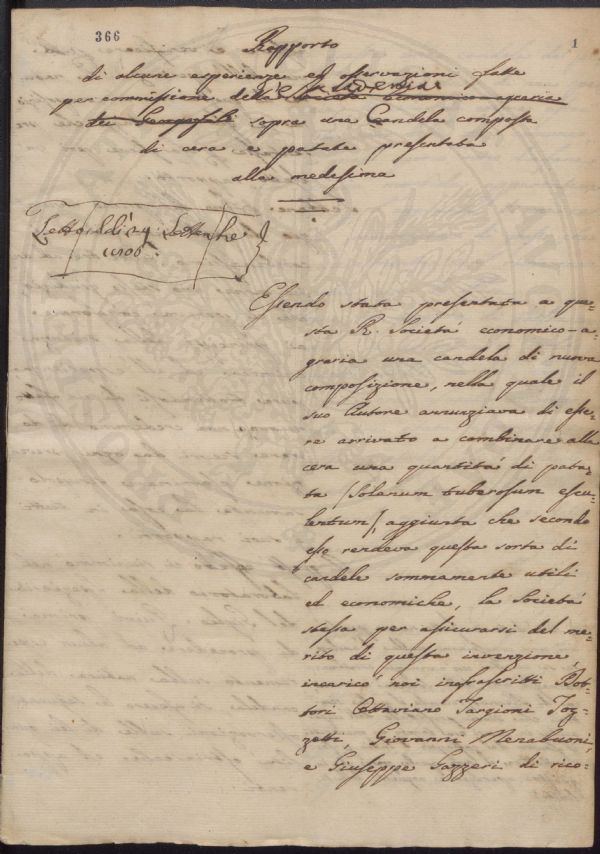 366
1
Rapporto
di alcune esperienze ed osservazioni fatte
Accademia
per commissione della Società economico-agraria
dei Georgofili sopra una Candela composta
di cera e patate presentata
alla medesima
Letto addì 24 Settembre
Essendo stata presentata a que-
sta R. Società economico-a-
graria una candela di nuova
composizione, nella quale il
suo Autore annunziava di esse-
re arrivato a combinare alla
cera una quantità di pata-
ta (Solanum tuberosum escu-
lentum), aggiunta che secondo
esso rendeva questa sorta di
candele sommamente utili
ed economiche, la Società
stessa per assicurarsi del me-
rito di questa invenzione
incaricò noi infrascritti Dot-
tori Ottaviano Targioni Toz-
zetti, Giovanni Menabuoni,
e Giuseppe Gazzeri di rico-